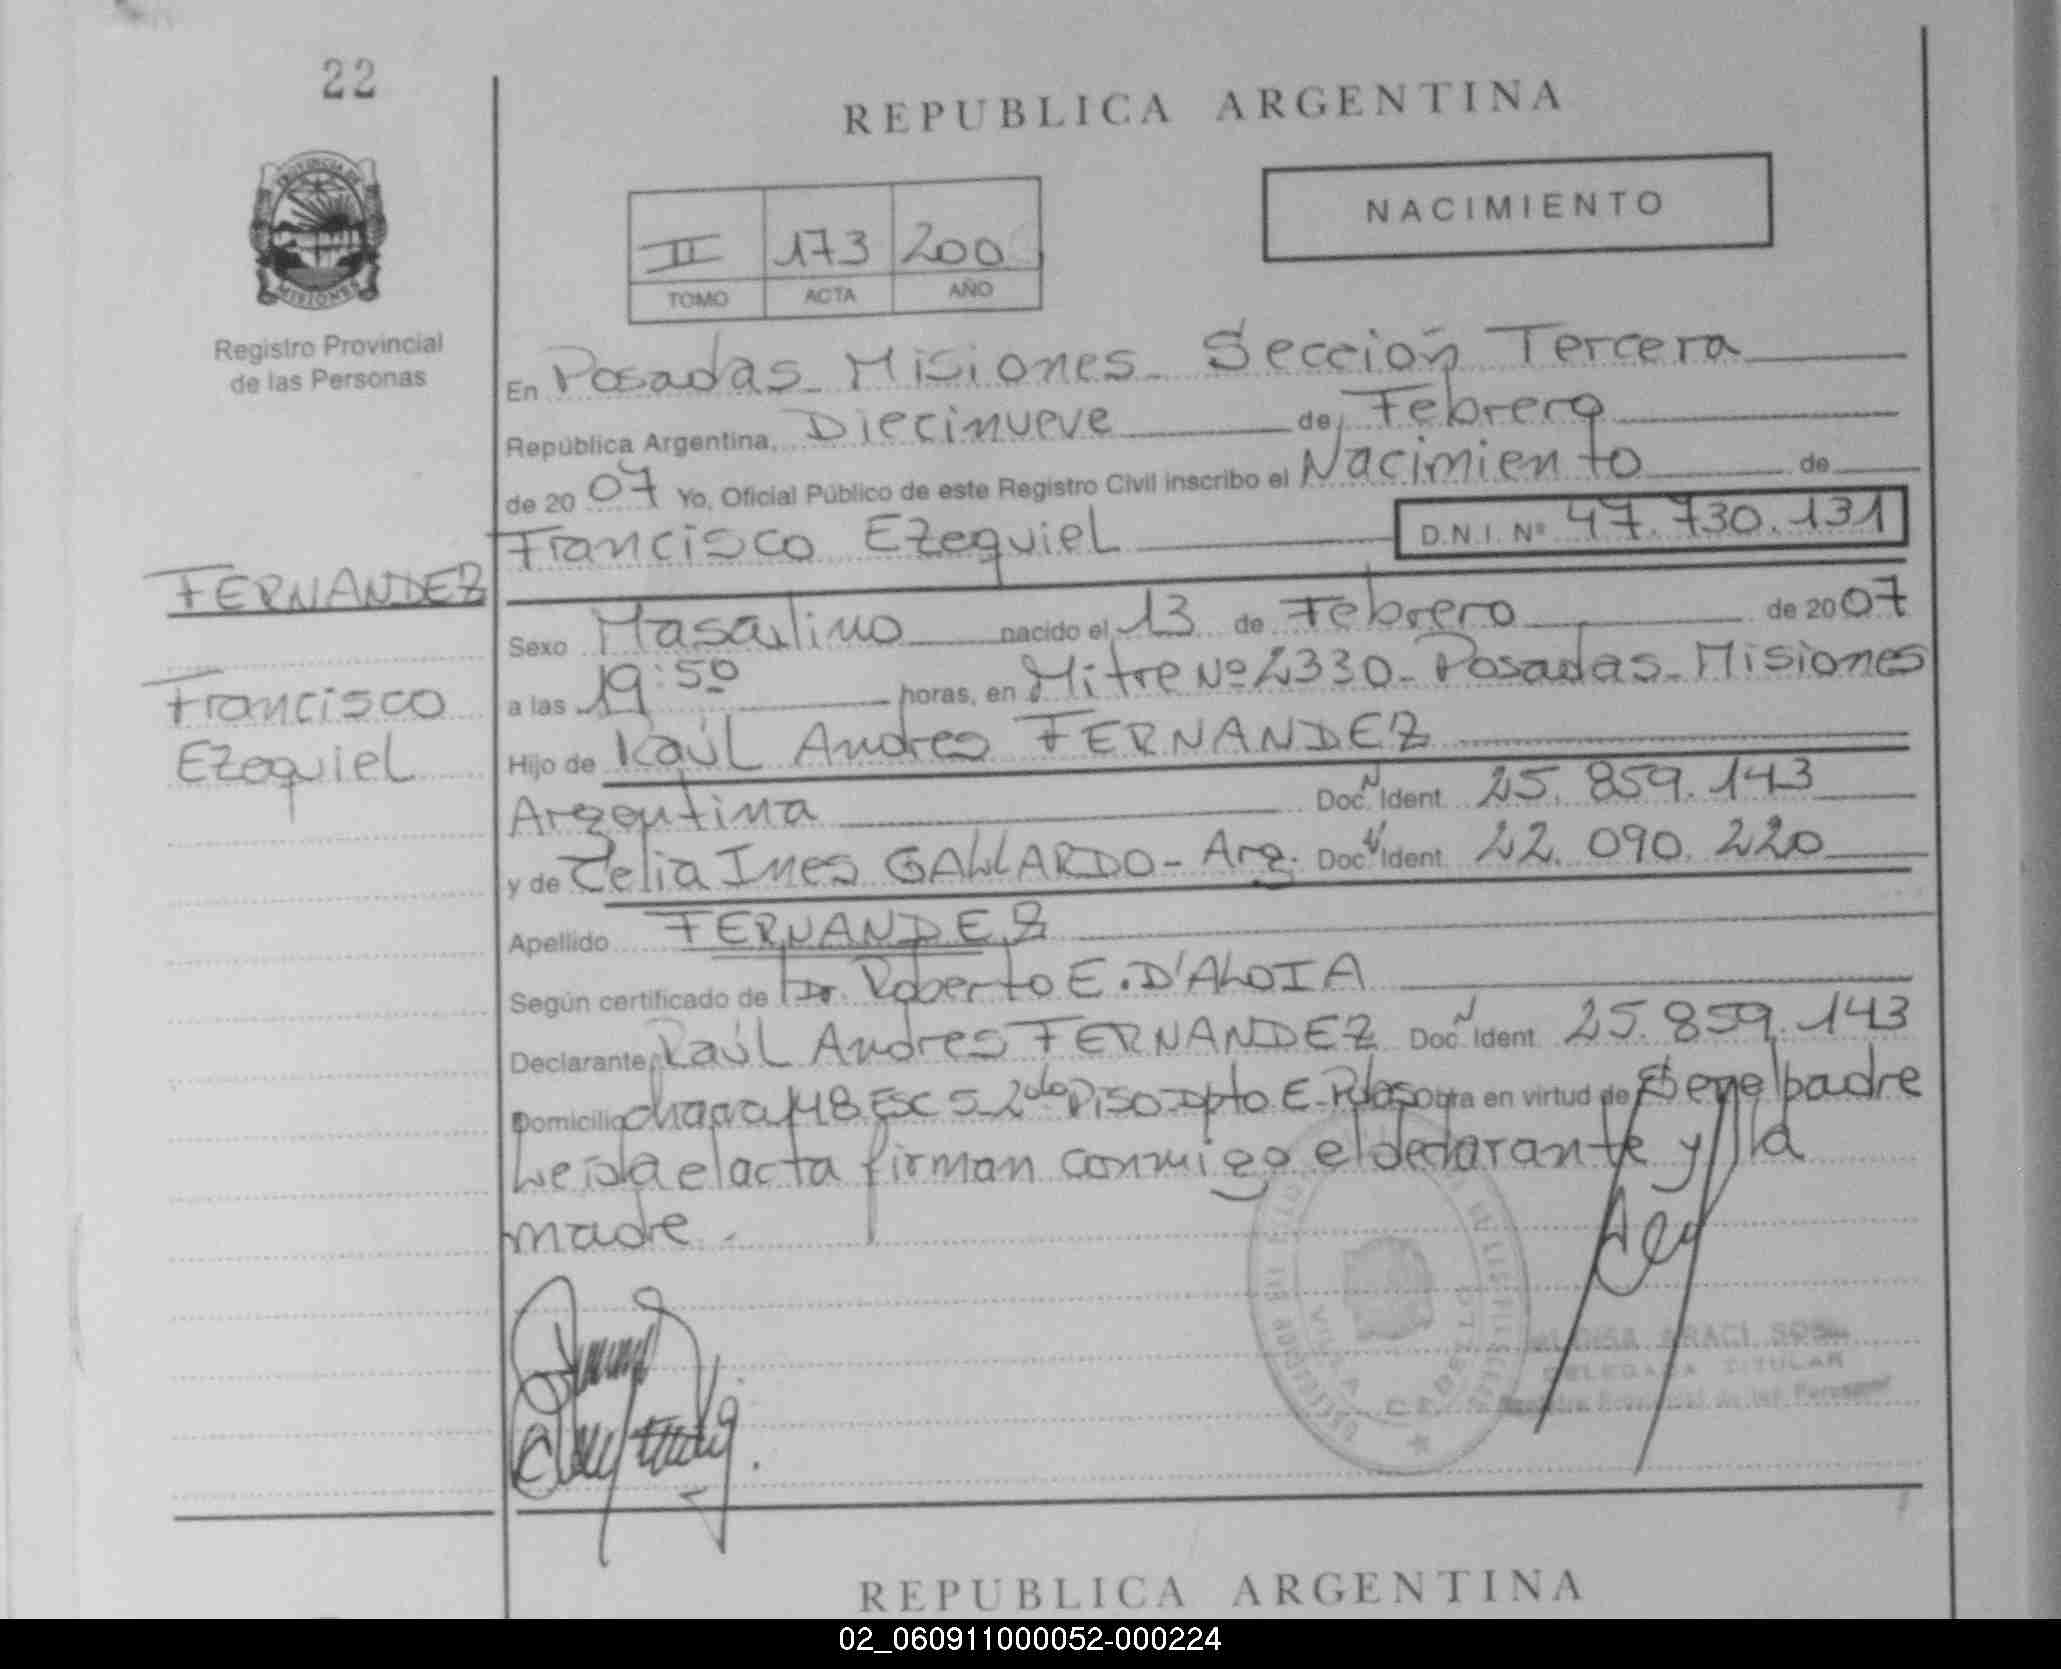 22
REPUBLICA ARGENTINA
PROVINCIA DE
MISIONES
Registro Provincial
de las Personas
II 173 200
TOMO ACTA AÑO
NACIMIENTO
En Posadas - Misiones - Sección Tercera
República Argentina, Diecinueve de Febrero
de 2007 Yo, Oficial Público de este Registro Civil inscribo el Nacimiento de
Francisco Ezequiel D.N.I. Nº 47.730.131
FERNANDEZ
Francisco
Ezequiel
Sexo Masculino nacido el 13 de Febrero de 2007
a las 19:50 horas, en Mitre Nº 2330 - Posadas - Misiones
Hijo de Raúl Andres FERNANDEZ
Argentina Doc. Ident. 25.859.143
y de Celia Ines GALLARDO - Arg. Doc. Ident. 22.090.220
Apellido FERNANDEZ
Según certificado de Dr. Roberto E. D'ALOIA
Declarante Raúl Andres FERNANDEZ Doc. Ident. 25.859.143
Domicilio chacra 148 Esc 5 - 2do Piso - Dpto E - Pdas obra en virtud de Ser el padre
Leída el acta firman conmigo el declarante y la
madre -
DELEGADA TITULAR
Registro Provincial de las Personas
REPUBLICA ARGENTINA
02_060911000052-000224